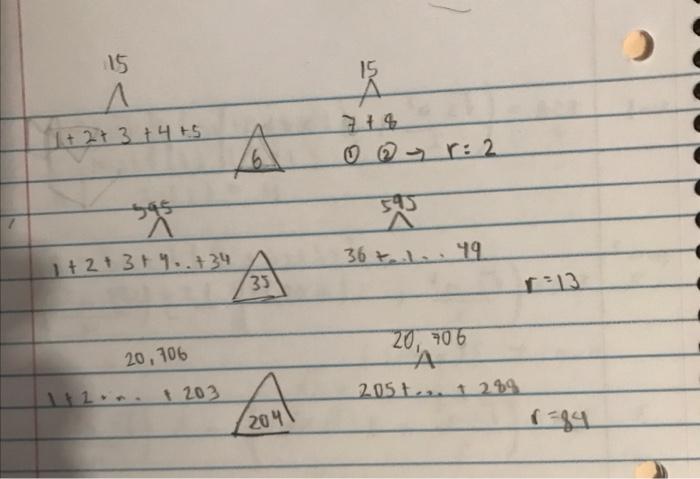 15 15
1+2+3+4+5 6 7+8
① ② → r=2
595 595
1+2+3+4..+34 35 36+..1... 49
r=13
20,706 20,706
1+2.... +203 204 205+...+288
r=84